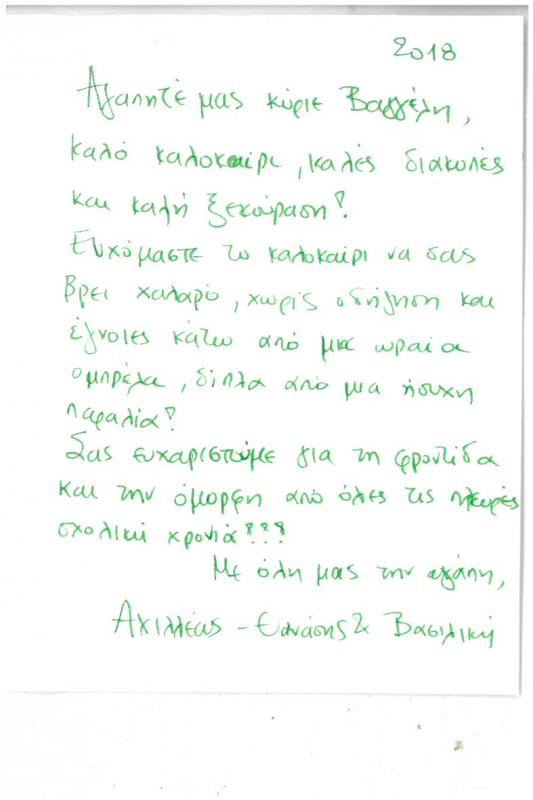 2018
Αγαπητέ μας κύριε Βαγγέλη,
καλό καλοκαίρι, καλές διακοπές
και καλή ξεκούραση!
Ευχόμαστε το καλοκαίρι να σας
βρει χαλαρό, χωρίς οδήγηση και
έγνοιες κάτω από μια ωραία
ομπρέλα, δίπλα από μια ήσυχη
παραλία!
Σας ευχαριστούμε για τη φροντίδα
και την όμορφη από όλες τις πλευρές
σχολική χρονιά!!!
Με όλη μας την αγάπη,
Αχιλλέας - Θανάσης & Βασιλική